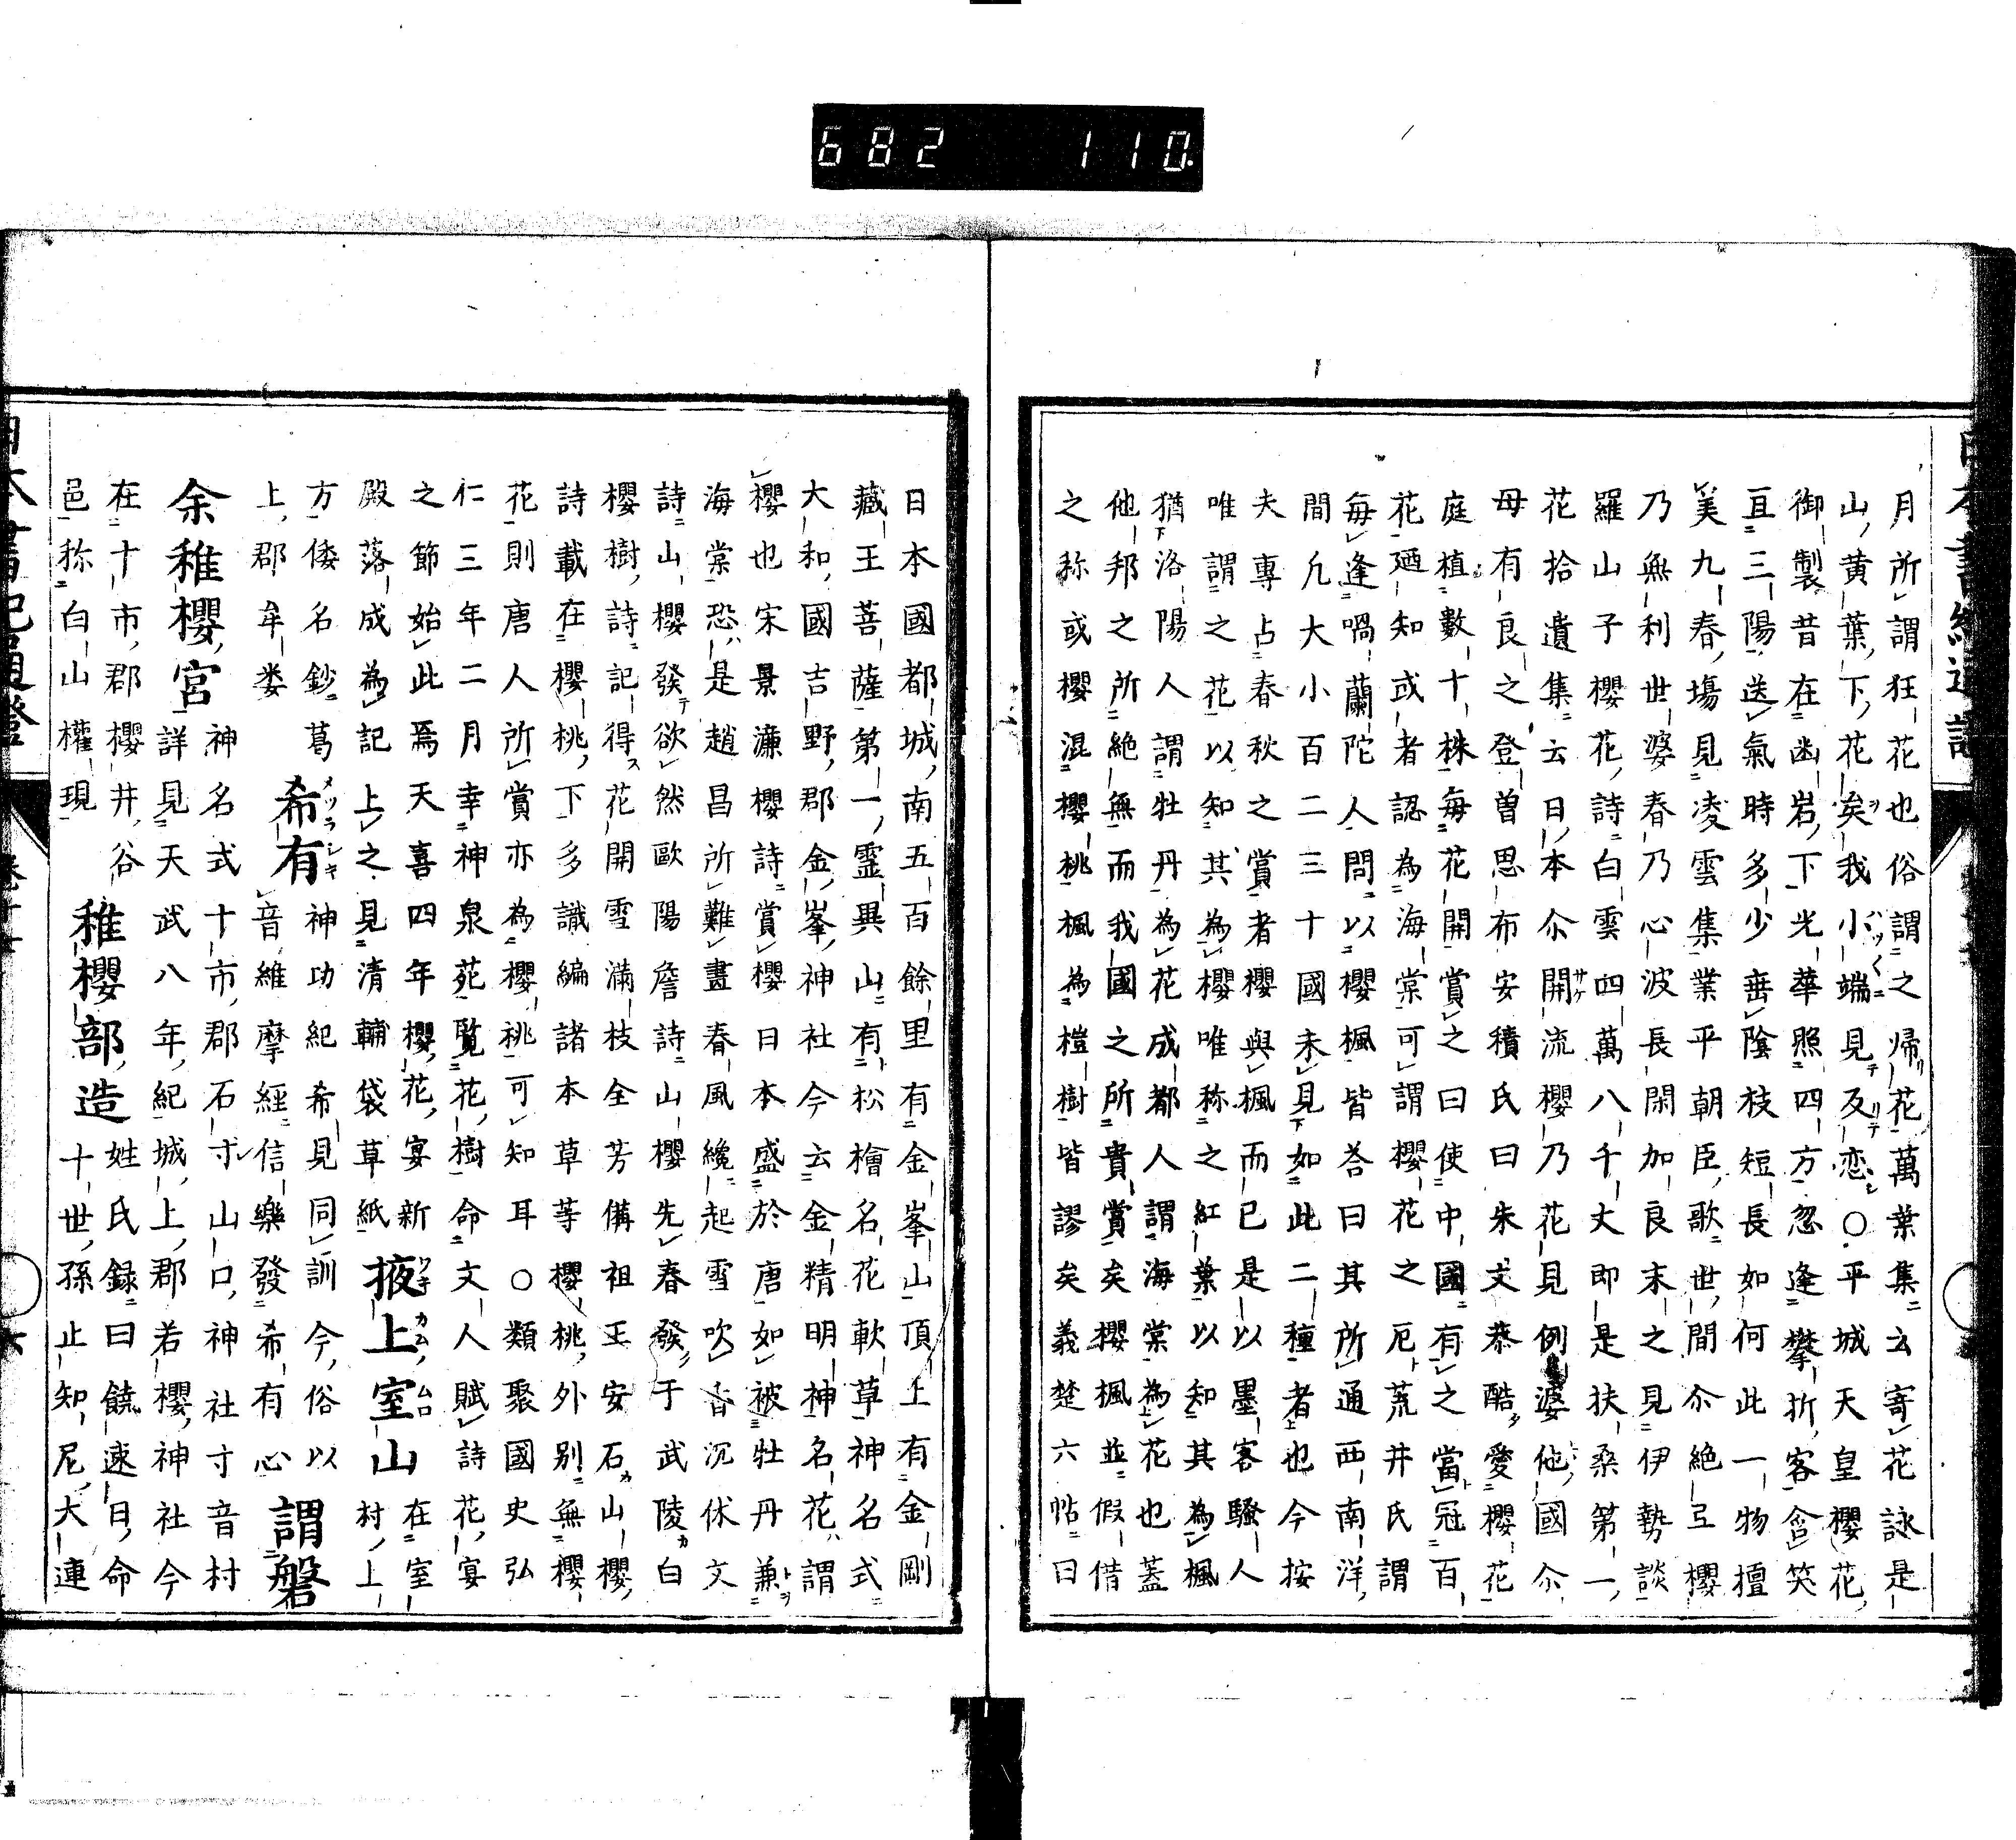 682 110.
月所謂狂花也俗謂之帰花萬葉集云寄花詠是
山黄葉下花矣我小端見反恋○平城天皇櫻花
御製昔在幽岩下光華照四方忽逢攀折客含笑
亘三陽送氣時多少垂陰枝短長如何此一物擅
美九春塲見凌雲集業平朝臣歌世間尒絶弖櫻
乃無利世婆春乃心波長閑加良末之見伊勢談
羅山子櫻花詩白雲四萬八千丈即是扶桑第一
花拾遺集云日本尒開流櫻乃花見例婆他國尒
母有良之登曽思布安積氏曰朱文恭酷愛櫻花
庭植數十株毎花開賞之曰使中國有之當冠百
花廼知或者認為海棠可謂櫻花之厄荒井氏謂
毎逢喎蘭陀人問以櫻楓皆荅曰其所通西南洋
間凢大小百二三十國未見如此二種者也今按
夫專占春秋之賞者櫻與楓而已是以墨客騷人
唯謂之花以知其為櫻唯称之紅葉以知其為楓
猶洛陽人謂牡丹為花成都人謂海棠為花也蓋
他邦之所絶無而我國之所貴賞矣櫻楓並假借
之称或櫻混櫻桃楓為榿樹皆謬矣義楚六帖曰
日本國都城南五百餘里有金峯山頂上有金剛
藏王菩薩第一霊異山有松檜名花軟草神名式
大和國吉野郡金峯神社今云金精明神名花謂
櫻也宋景濂櫻詩賞櫻日本盛於唐如被牡丹兼
海棠恐是趙昌所難畫春風纔起雪吹香沉休文
詩山櫻發欲然歐陽詹詩山櫻先春發于武陵白
櫻樹詩記得花開雪滿枝全芳備祖王安石山櫻
詩載在櫻桃下多識編諸本草等櫻桃外別無櫻
花則唐人所賞亦為櫻桃可知耳○類聚國史弘
仁三年二月幸神泉苑覧花樹命文人賦詩花宴
之節始此焉天喜四年櫻花宴新
殿落成為記上之見清輔袋草紙 掖上室山 在室
村上
方倭名鈔葛
上郡牟婁 希有 神功紀希見同訓今俗以
音維摩經信樂發希有心 謂磐
余稚櫻宮 神名式十市郡石寸山口神社寸音村
詳見天武八年紀城上郡若櫻神社今
在十市郡櫻井谷
邑称白山權現 稚櫻部造 姓氏録曰饒速日命
十世孫止知尼大連